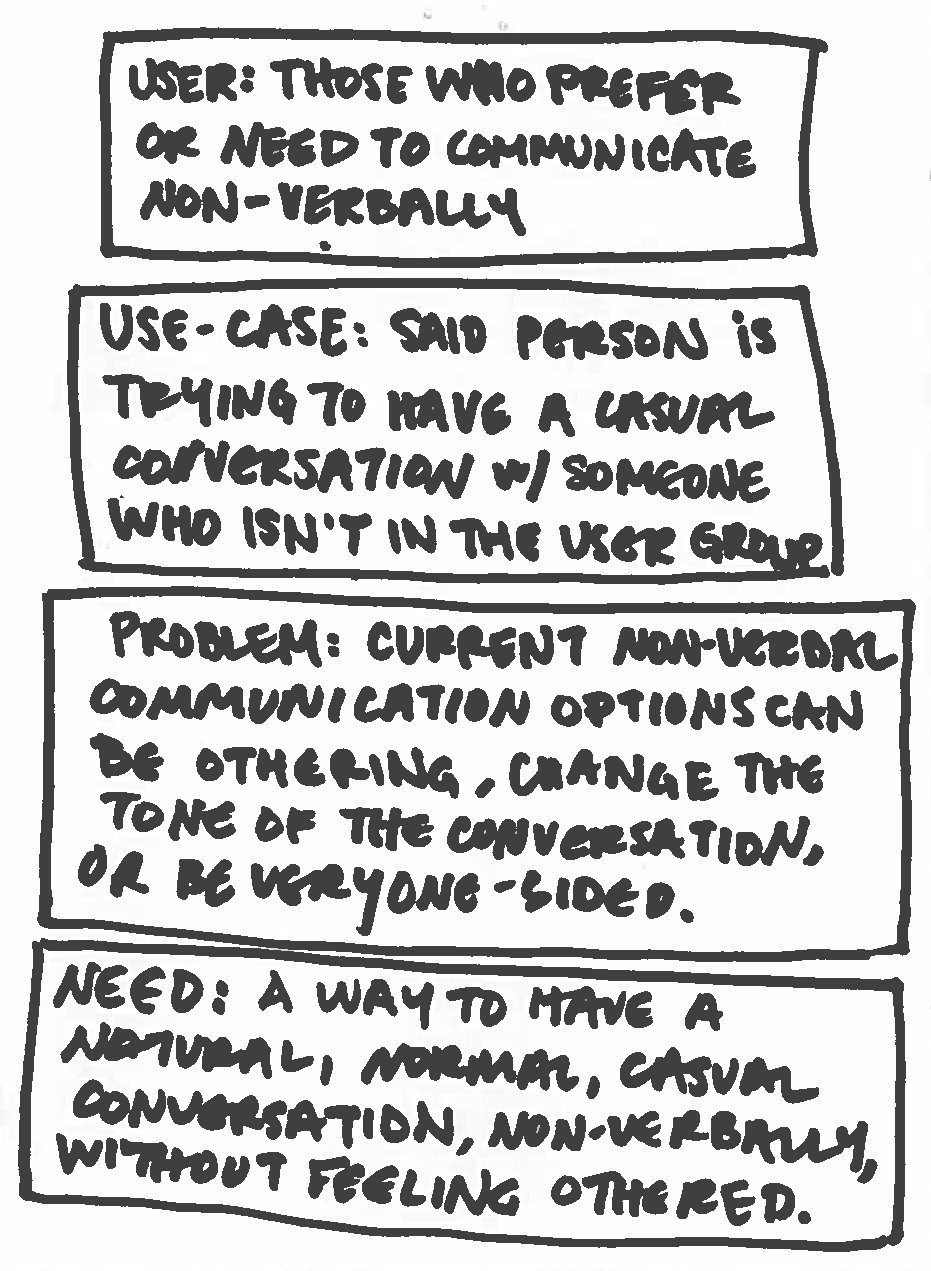 USER: THOSE WHO PREFER
OR NEED TO COMMUNICATE
NON-VERBALLY
USE-CASE: SAID PERSON iS
TRYING TO HAVE A CASUAL
CONVERSATION W/ SOMEONE
WHO ISN'T IN THE USER GROUP.
PROBLEM: CURRENT NON-VERBAL
COMMUNICATION OPTIONS CAN
BE OTHERING, CHANGE THE
TONE OF THE CONVERSATION,
OR BE VERY ONE-SIDED.
NEED: A WAY TO HAVE A
NATURAL, NORMAL, CASUAL
CONVERSATION, NON-VERBALLY,
WITHOUT FEELING OTHERED.